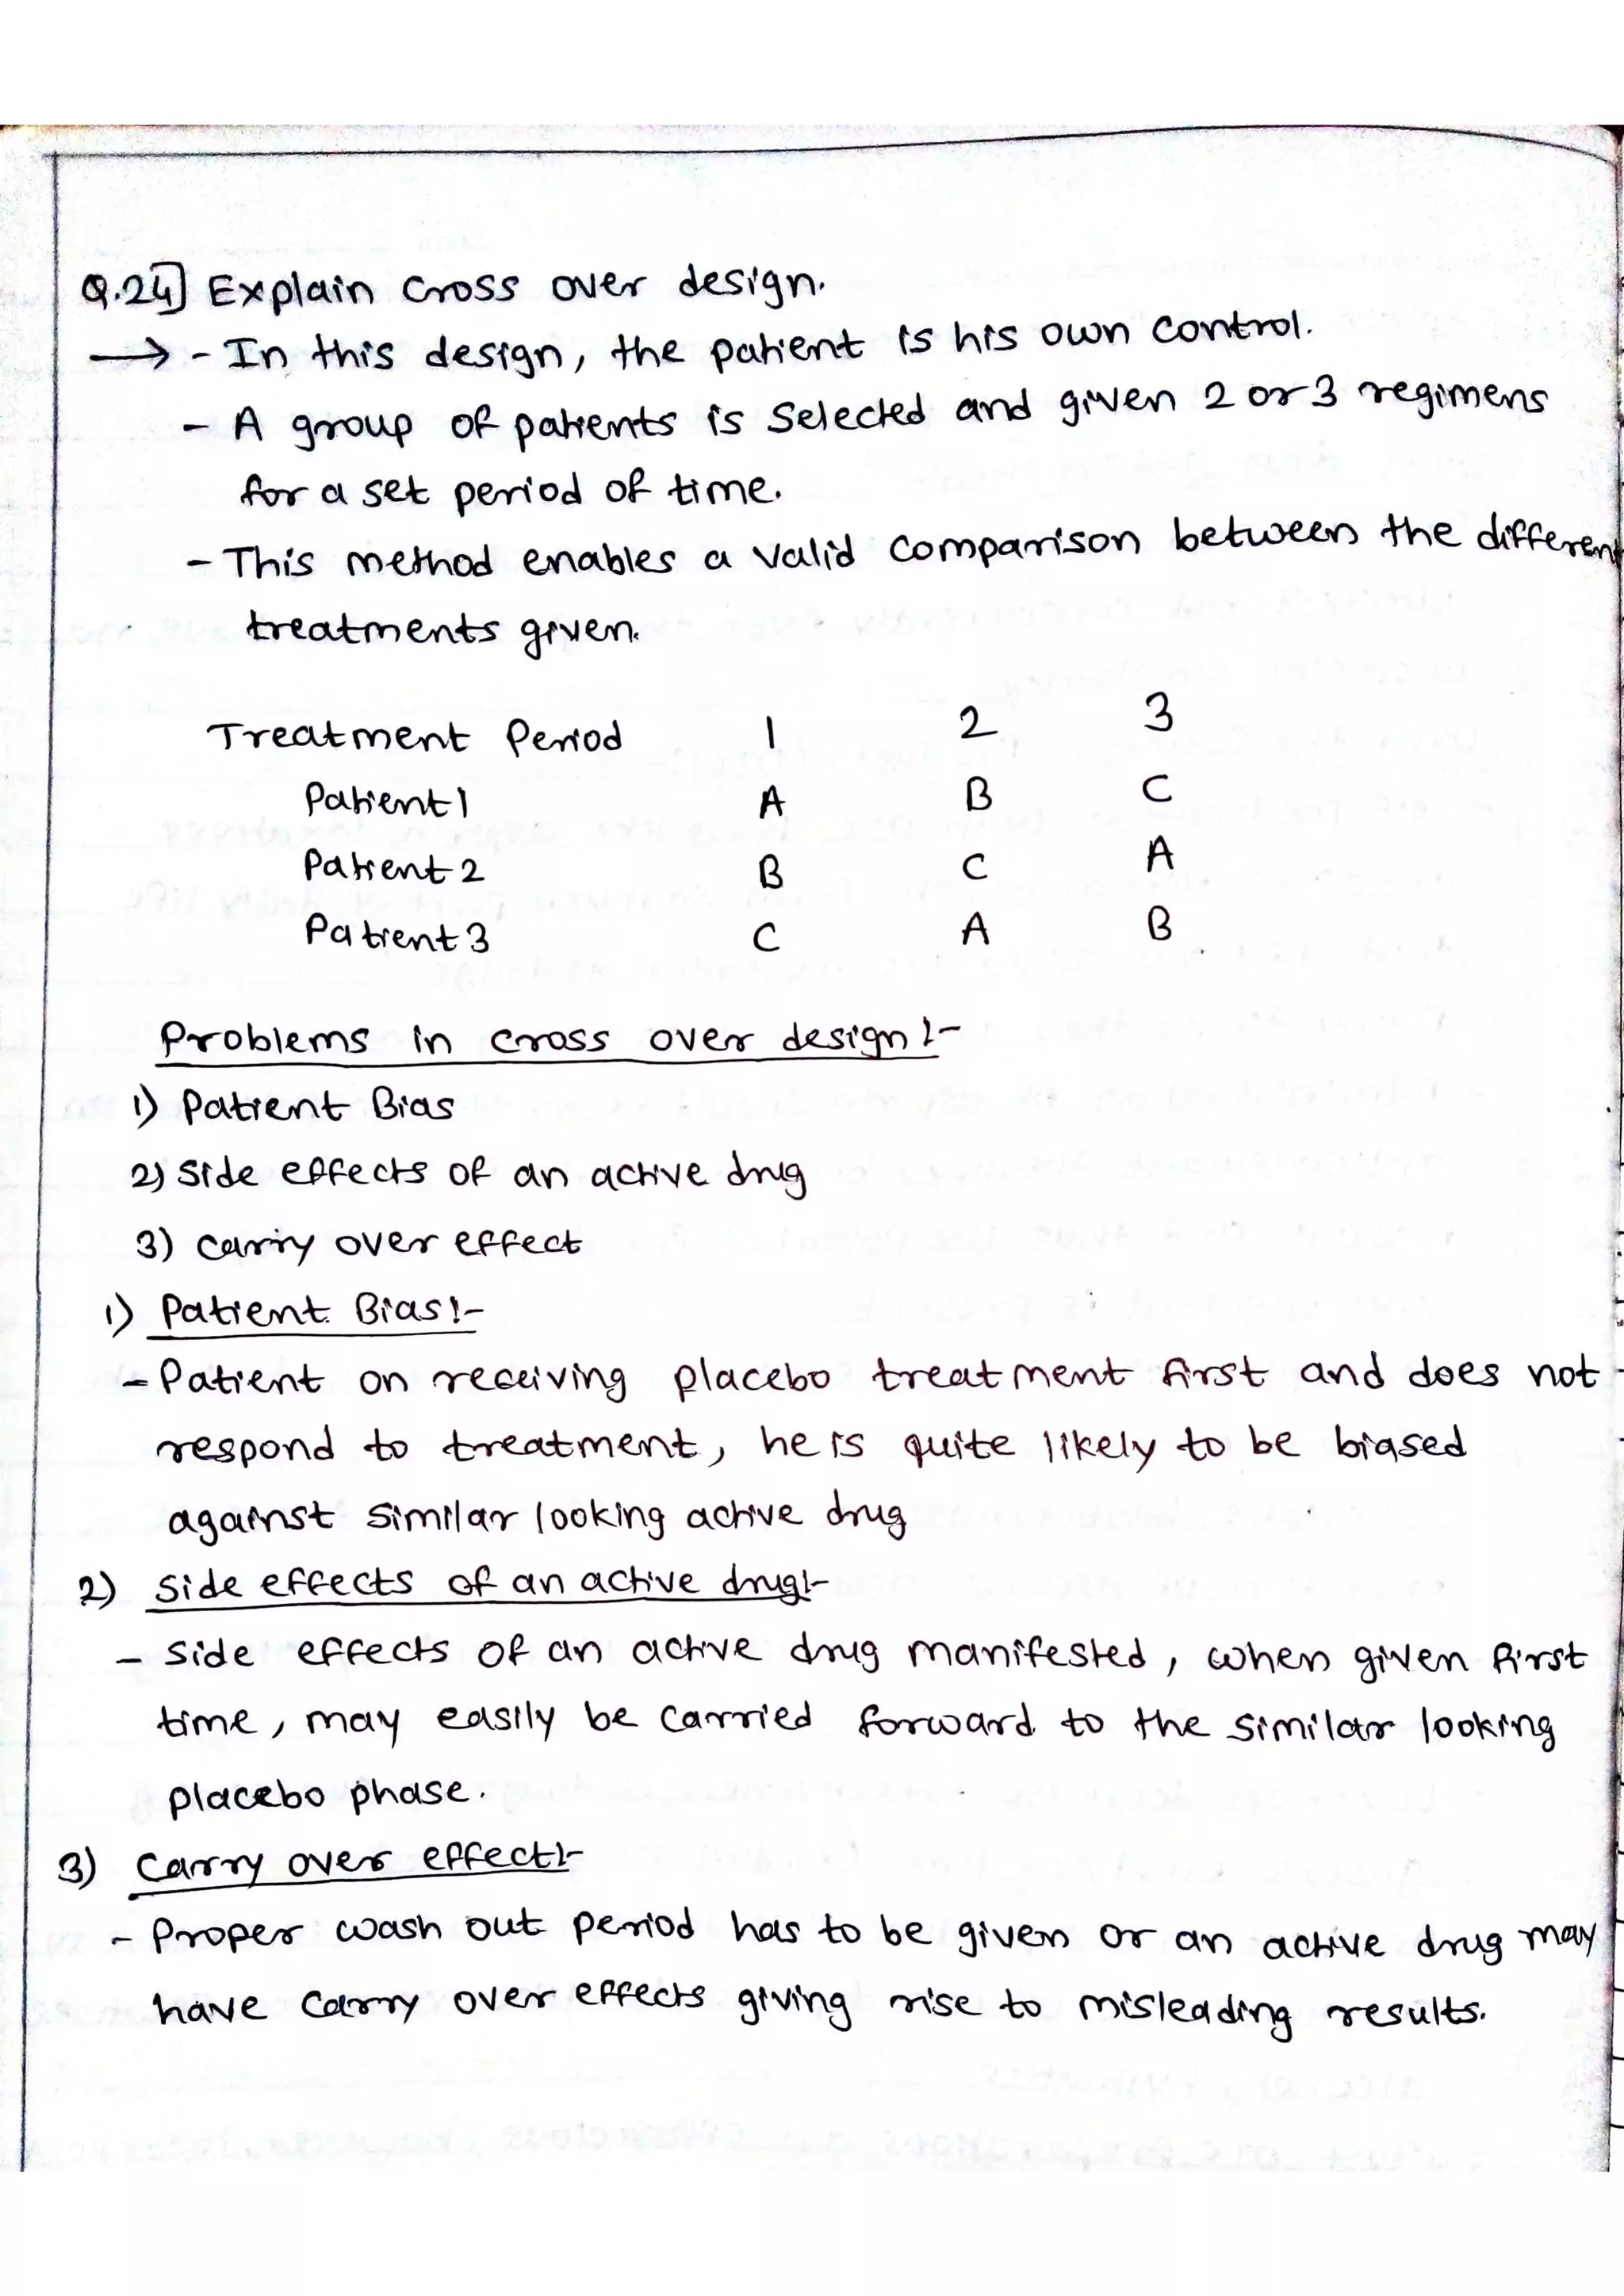 Q.24] Explain Cross over design.
→ - In this design, the patient is his own control.
- A group of patients is selected and given 2 or 3 regimens
for a set period of time.
- This method enables a valid comparison between the different
treatments given.
Treatment Period 1 2 3
Patient 1 A B C
Patient 2 B C A
Patient 3 C A B
Problems in cross over design :-
1) Patient Bias
2) Side effects of an active drug
3) carry over effect
1) Patient Bias :-
- Patient on receiving placebo treatment first and does not
respond to treatment, he is quite likely to be biased
against similar looking active drug
2) Side effects of an active drug :-
- Side effects of an active drug manifested, when given first
time, may easily be carried forward to the similar looking
placebo phase.
3) Carry over effect :-
- Proper wash out period has to be given or an active drug may
have carry over effects giving rise to misleading results.